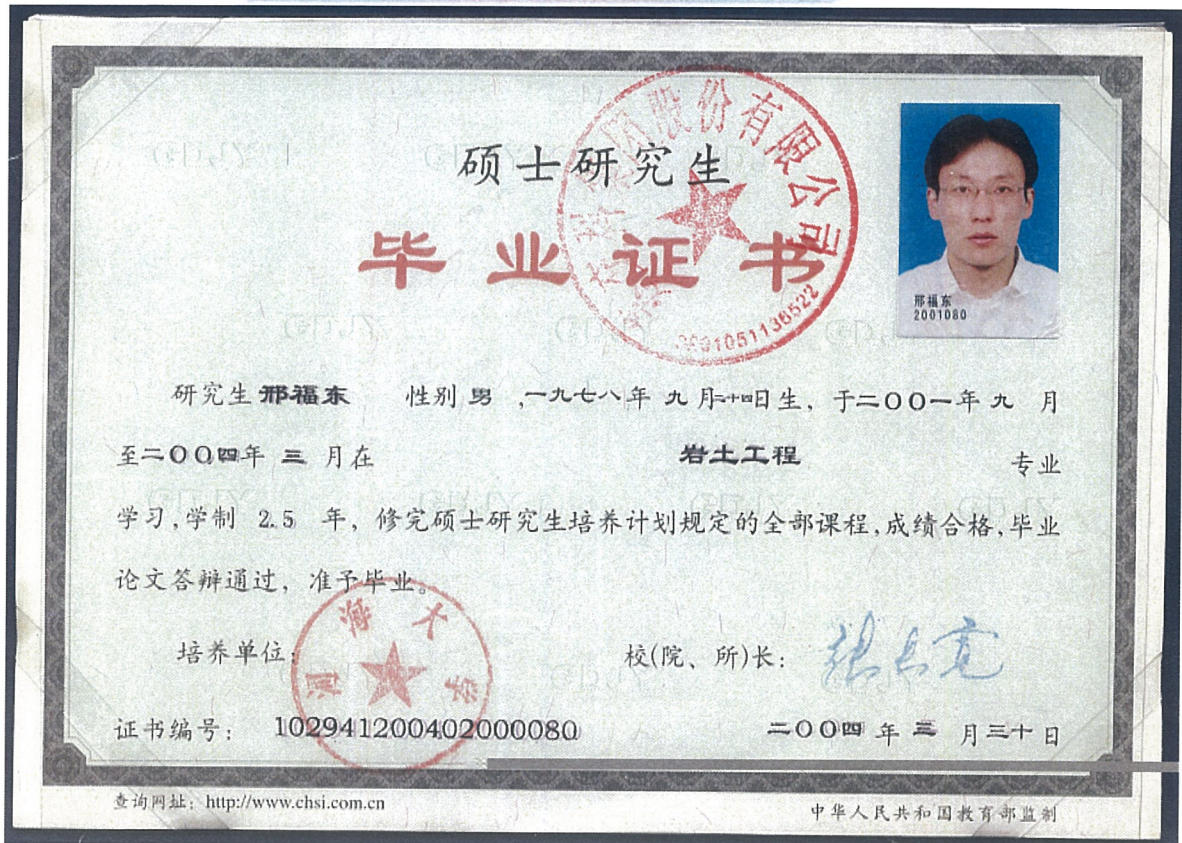 硕士研究生
毕业证书
股份有限公司
邢福东
2001080
研究生 邢福东 性别 男 ,一九七八年 九 月二十四日生, 于二〇〇一年 九 月
至二〇〇四年 三 月在 岩土工程 专业
学习,学制 2.5 年, 修完硕士研究生培养计划规定的全部课程,成绩合格,毕业
论文答辩通过, 准予毕业。
河海大学
培养单位: 校(院、所)长: 张长宽
证书编号: 102941200402000080 二〇〇四 年 三 月三十日
查询网址: http://www.chsi.com.cn 中华人民共和国教育部监制